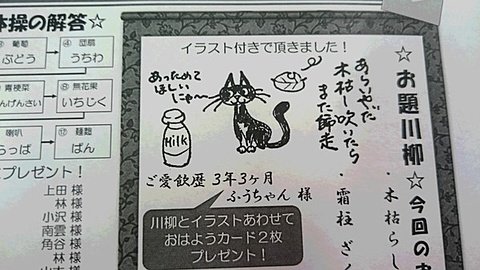 体操の解答☆
③ 葡萄
ぶどう
④ 団扇
うちわ
⑦ 青梗菜
んげんさい
⑧ 無花果
いちじく
喇叭
らっぱ
⑫ 麺麭
ぱん
プレゼント！
上田 様
林 様
小沢 様
南雲 様
角谷 様
林 様
イラスト付きで頂きました！
あらいやだ
木枯らし吹いたら
また師走
あっためて
ほしい
にゃ～
Milk
ご愛飲歴 3年3ヶ月
ふうちゃん 様
川柳とイラストあわせて
おはようカード2枚
プレゼント！
☆お題川柳☆今回のお
・木枯らし
・霜柱 ざく